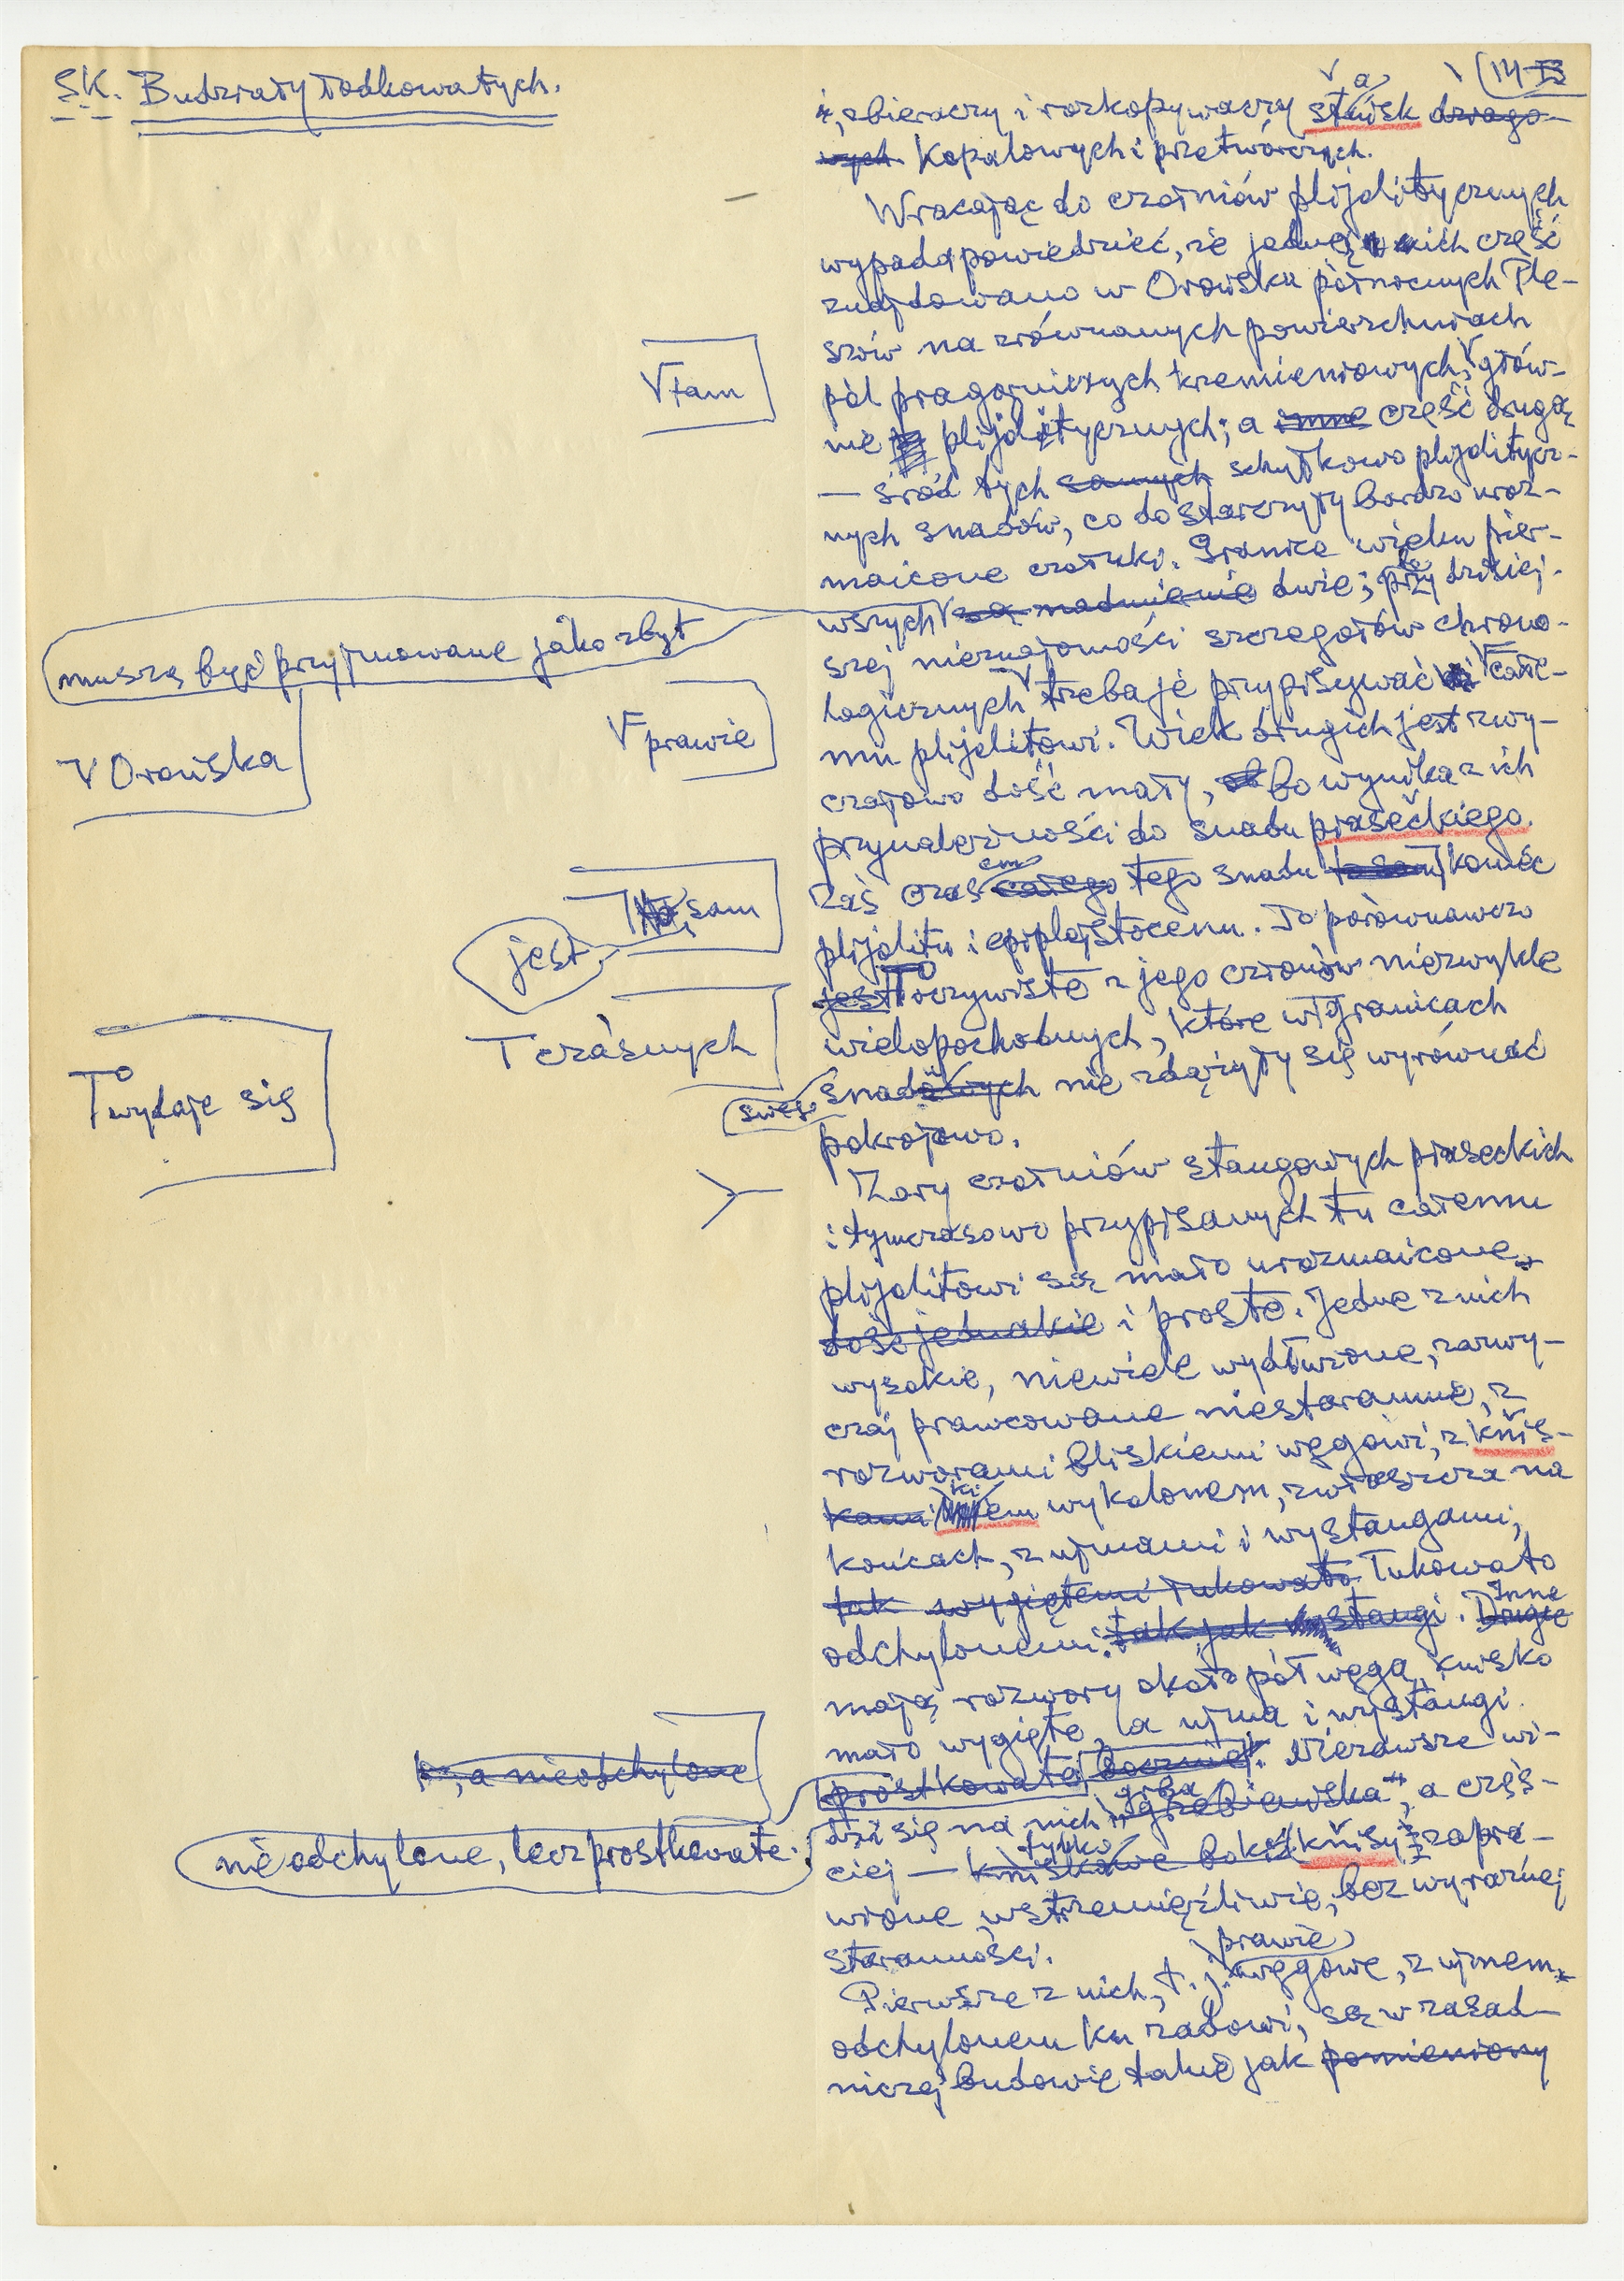 SK. Budziały łodkowatych.
(14 B
i, zbieraczy i rozkopywaczy stańsk dzago-
wych kopalowych i przetwórczych.
Wracając do czołniów plijolitycznych
wypada powiedzieć, że jedną z nich część
znajdowano w Orońsku północnych Ple-
szów na zrównanych powierzchniach
pól pragórniczych krzemieniowych, głów-
nie plijolitycznych; a inne część drugą
— śród tych samych schyłkowo plijolitycz-
nych snadów, co dostarczyły bardzo uroz-
maicone czołuki. Granice wieku pier-
wszych są nadmienie dwie; przy dzisiej-
szej nieznajomości szczegółów chrono-
logicznych trzeba je przypisywać i całe-
mu plijolitowi. Wiek drugich jest zwy-
czajowo dość mały, bo wynika z ich
przynależności do snadu piaseckiego.
Zaś czas całego tego snadu to sam koniec
plijolitu i epiplejstocenu. To porównawczo
jest oczywiste z jego członów niezwykle
wielopochodnych, które w granicach
snadowych nie zdążyły się wyrównać
pokrojowo.
Zary czołniów stangowych piaseckich
i tymczasowo przypisanych tu całemu
plijolitowi są mało urozmaicone,
dość jednakie i proste. Jedne z nich
wysokie, niewiele wydłużone, zazwy-
czaj pracowane niestarannie, z
rozworami bliskiemi węgowi, z kńis-
kami kiem wykolonem, zwłaszcza na
końcach, z ujmami i wystangami,
tak wygiętemi łukowato łukowato
odchylonemi. tak jak wystangi. Drugie Inne
mają rozwory około pół węga, knisko
mało wygięte, a ujma i wystangi
prostkowate bocznie. Nierawsze wi-
dzi się na nich „grzebiewska”, a częś-
ciej — kniskowe tylko boki kńisy zapra-
wione wstrzemięźliwie, bez wyraźnej
staranności.
Pierwsze z nich, t. j. prawie węgowe, z ujmem
odchylonem ku zadowi, są w zasad-
niczej budowie takie jak pomieniony
V tam
muszą być przyjmowane jako zbyt
V Orońska
V prawie
sam
jest
T cząsnych
T wydaje się
swego
, a nieodchylone
nieodchylone, lecz prostkowate.